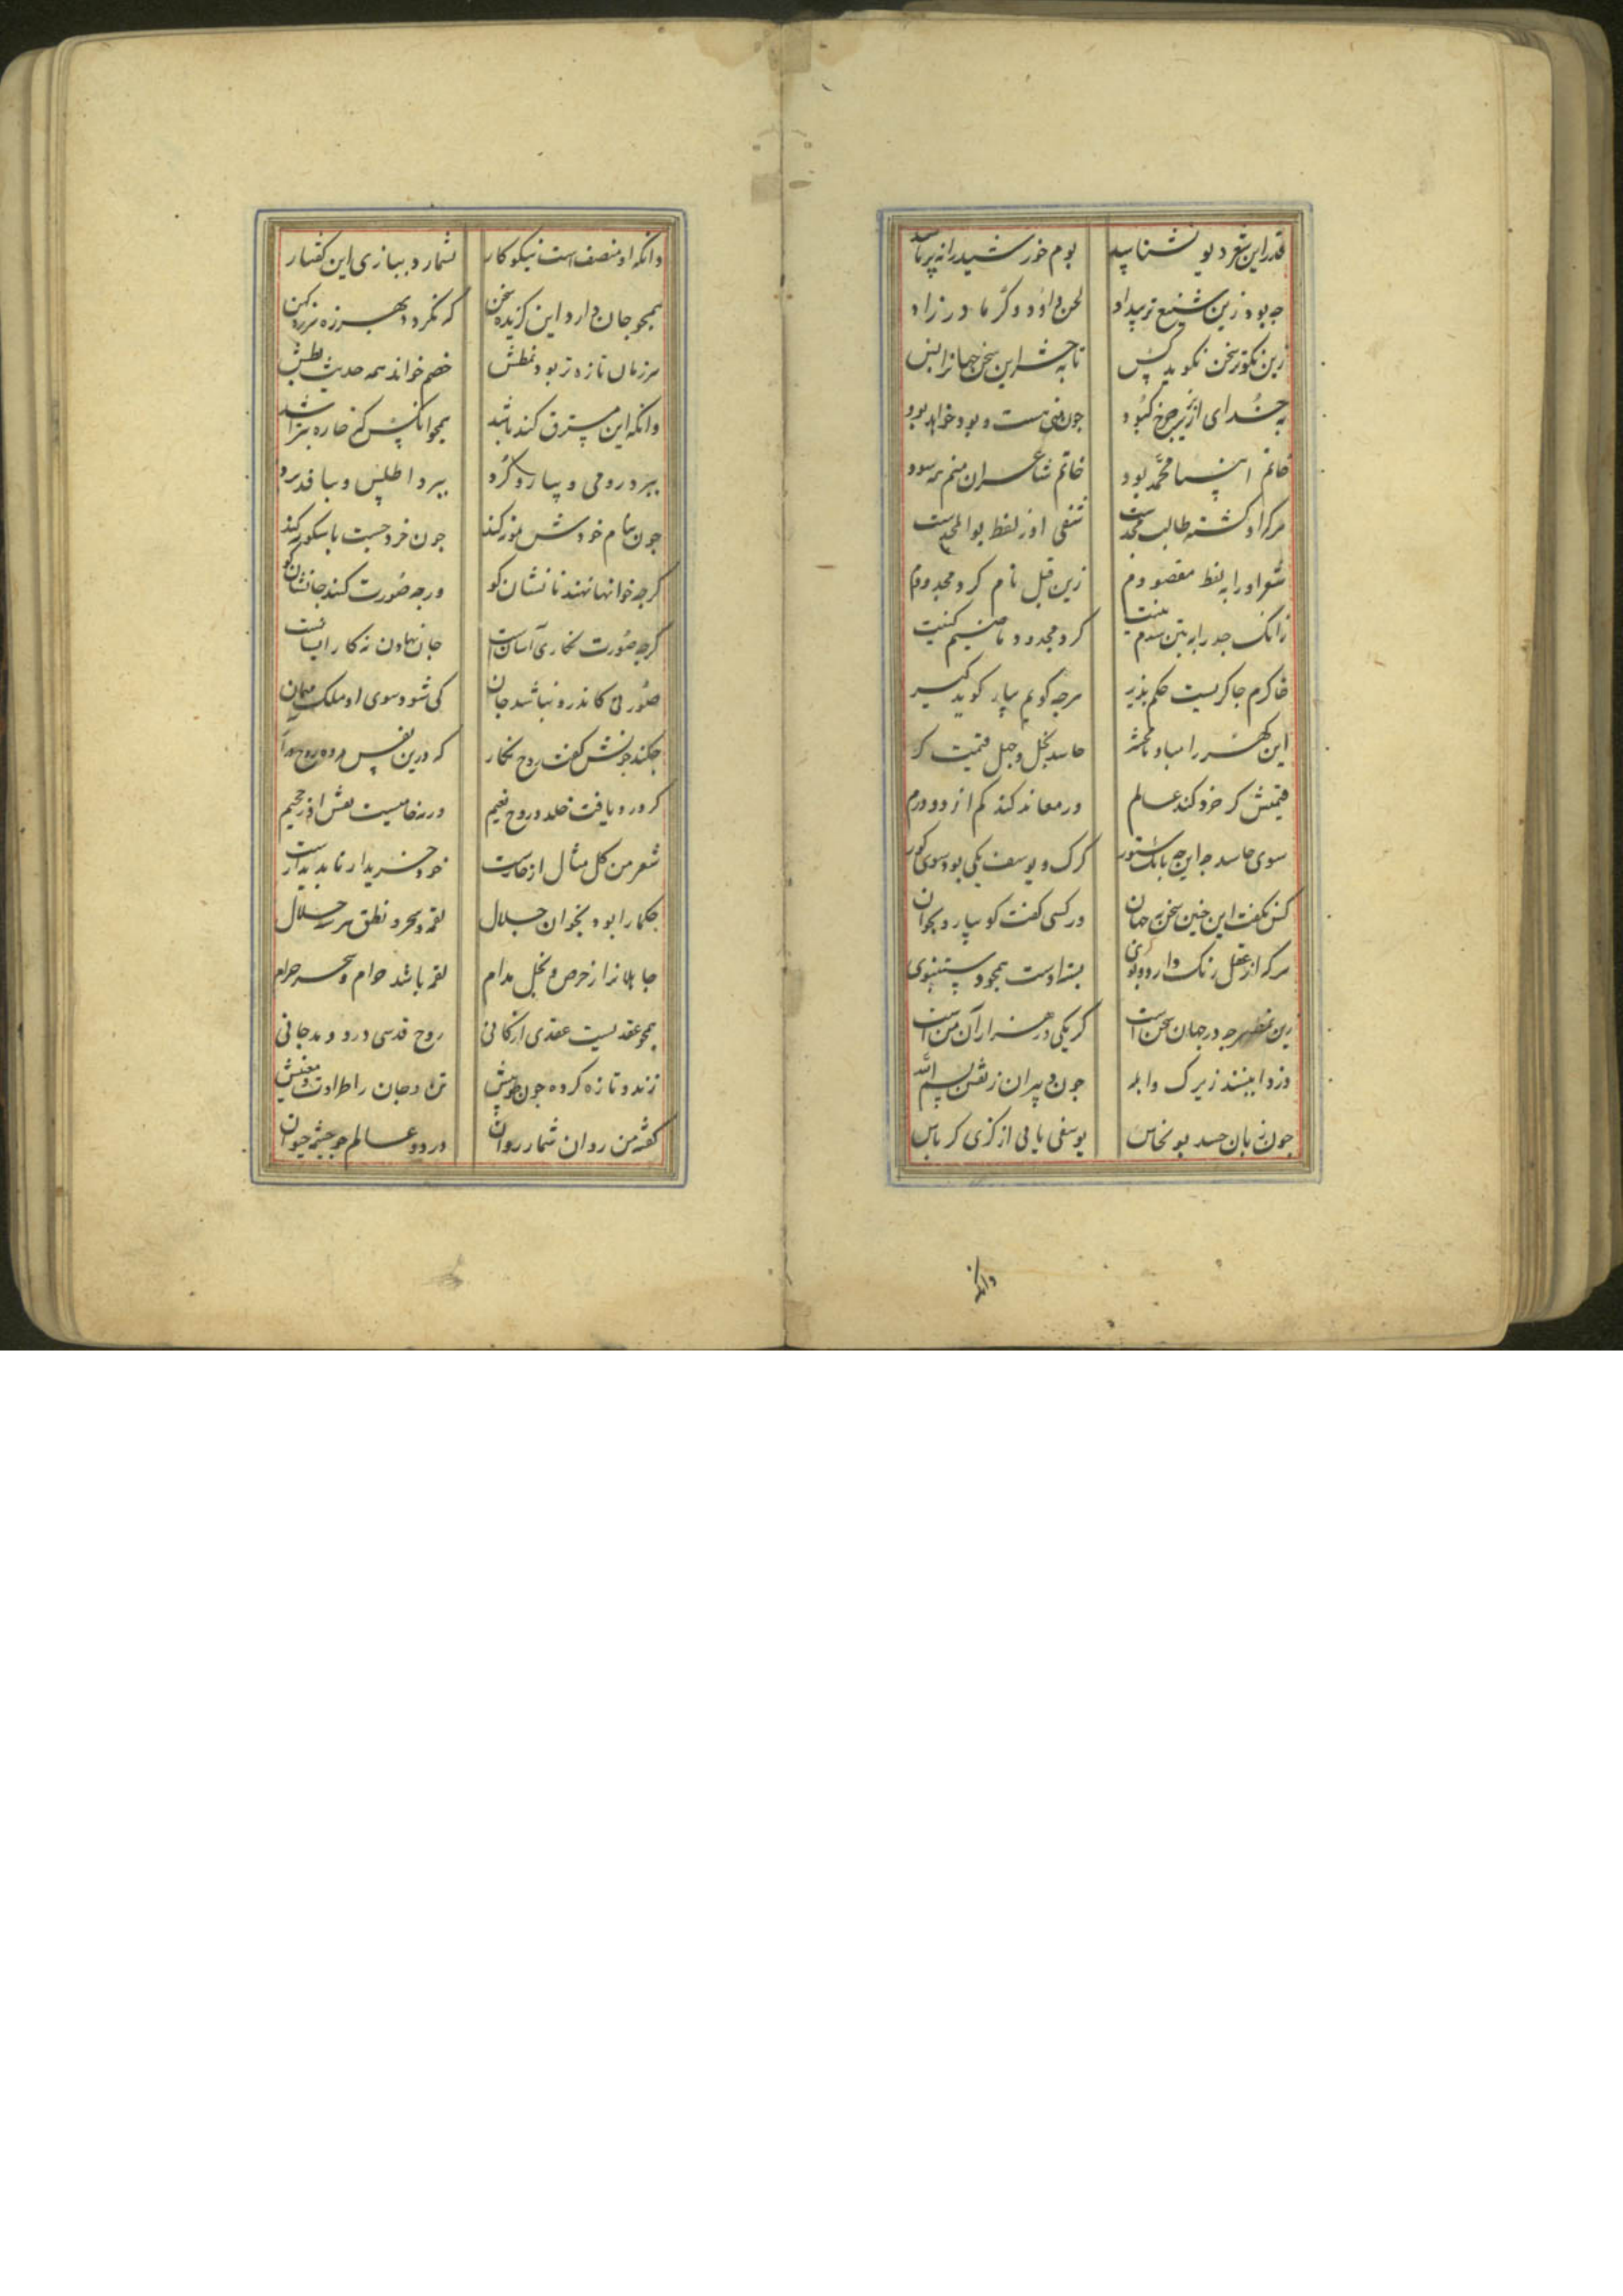 قدر این شعر دیو نشناسد بوم خورشید را نه پرماسد
چه بود زین شنیع تر بیداد لحن داوود و کر مادرزاد
زین نکوتر سخن نگوید کس تا به حشر این سخن جهانرا بس
به خدای ار بزیر چرخ کبود چون منی هست و بود و خواهد بود
خاتم انبیا محمّد بود خاتم شاعران منم همه سود
هر که او گشته طالب مجدست شفی او ز لفظ بوالمجدست
شعرا را به لفظ مقصودم زین قبل نام کرد مجدودم
زانک جد را به تن شدم بنیت کرد مجدود ماضیم کنیت
خاکرم چاکریست حکم پذیر هرچه گویم بیار گوید گیر
این گهر را مباد نامحشر حاسد بخل و جهل قیمت گر
قیمتش گر خرد کند عالم ور معاند کند کم از دو درم
سوی حاسد چه این چه بانک ستور گرگ و یوسف یکی بود سوی کور
کس نگفت این چنین سخن به جهان ور کسی گفت گو بیار و بخوان
هر که از عقل رنگ دارد و بوی بنده اوست همچو دستنبوی
زین نمط هرچه در جهان سخن است گر یکی در هزار آن من است
دزد ابینند زیرک و ابله چون دبیران ز نقش بسم الله
چون به بان حسد بو نخاس یوسفی یابی از گزی کرباس
وانکه
وانکه او منصف است نیکوکار نشمارد ببازی این گفتار
همچو جان دارد این گزیده سخن که نگردد بهرزه هرزه کهن
هر زمان تازه تر بود نمطش خصم خواند همه حدیث بطش
وانکه این مسترق کند باشد همچو آنکس که خاره بتراشد
ببرد رومی و بیارد کرد ببرد اطلس و ببافد برد
چون بنام خودش منور کند چون خرد جست با سکور کند
گرچه خوانها نهند نانشان کو ورچه صورت کنند جانشان کو
گرچه صورت نگاری آسان است جان نهادن نه کار ایشانست
صورتی کاندرو نباشد جان کی شود سوی او ملک مهمان
چکند چونش گفت روح نگار که درین نفس مرده روح درآر
گر درو یافت خلد و روح نعیم ورنه خامیست نقش او ز جحیم
شعر من کل مثال ازهارست خود خریدار ناپدیدارست
حکما را بود بخوان جلال لقمه و سحر و نطق هر سه حلال
جاهلانرا ز حرص و بخل مدام لقمه باشد حرام و سحر حرام
همچو عقدیست عقدی از کانی روح قدسی درو دمد جانی
زنده و تازه کرده چون خویش تن و جان را طراوت معنیش
گفته من روان شمار روان در دو عالم چو چشمه حیوان